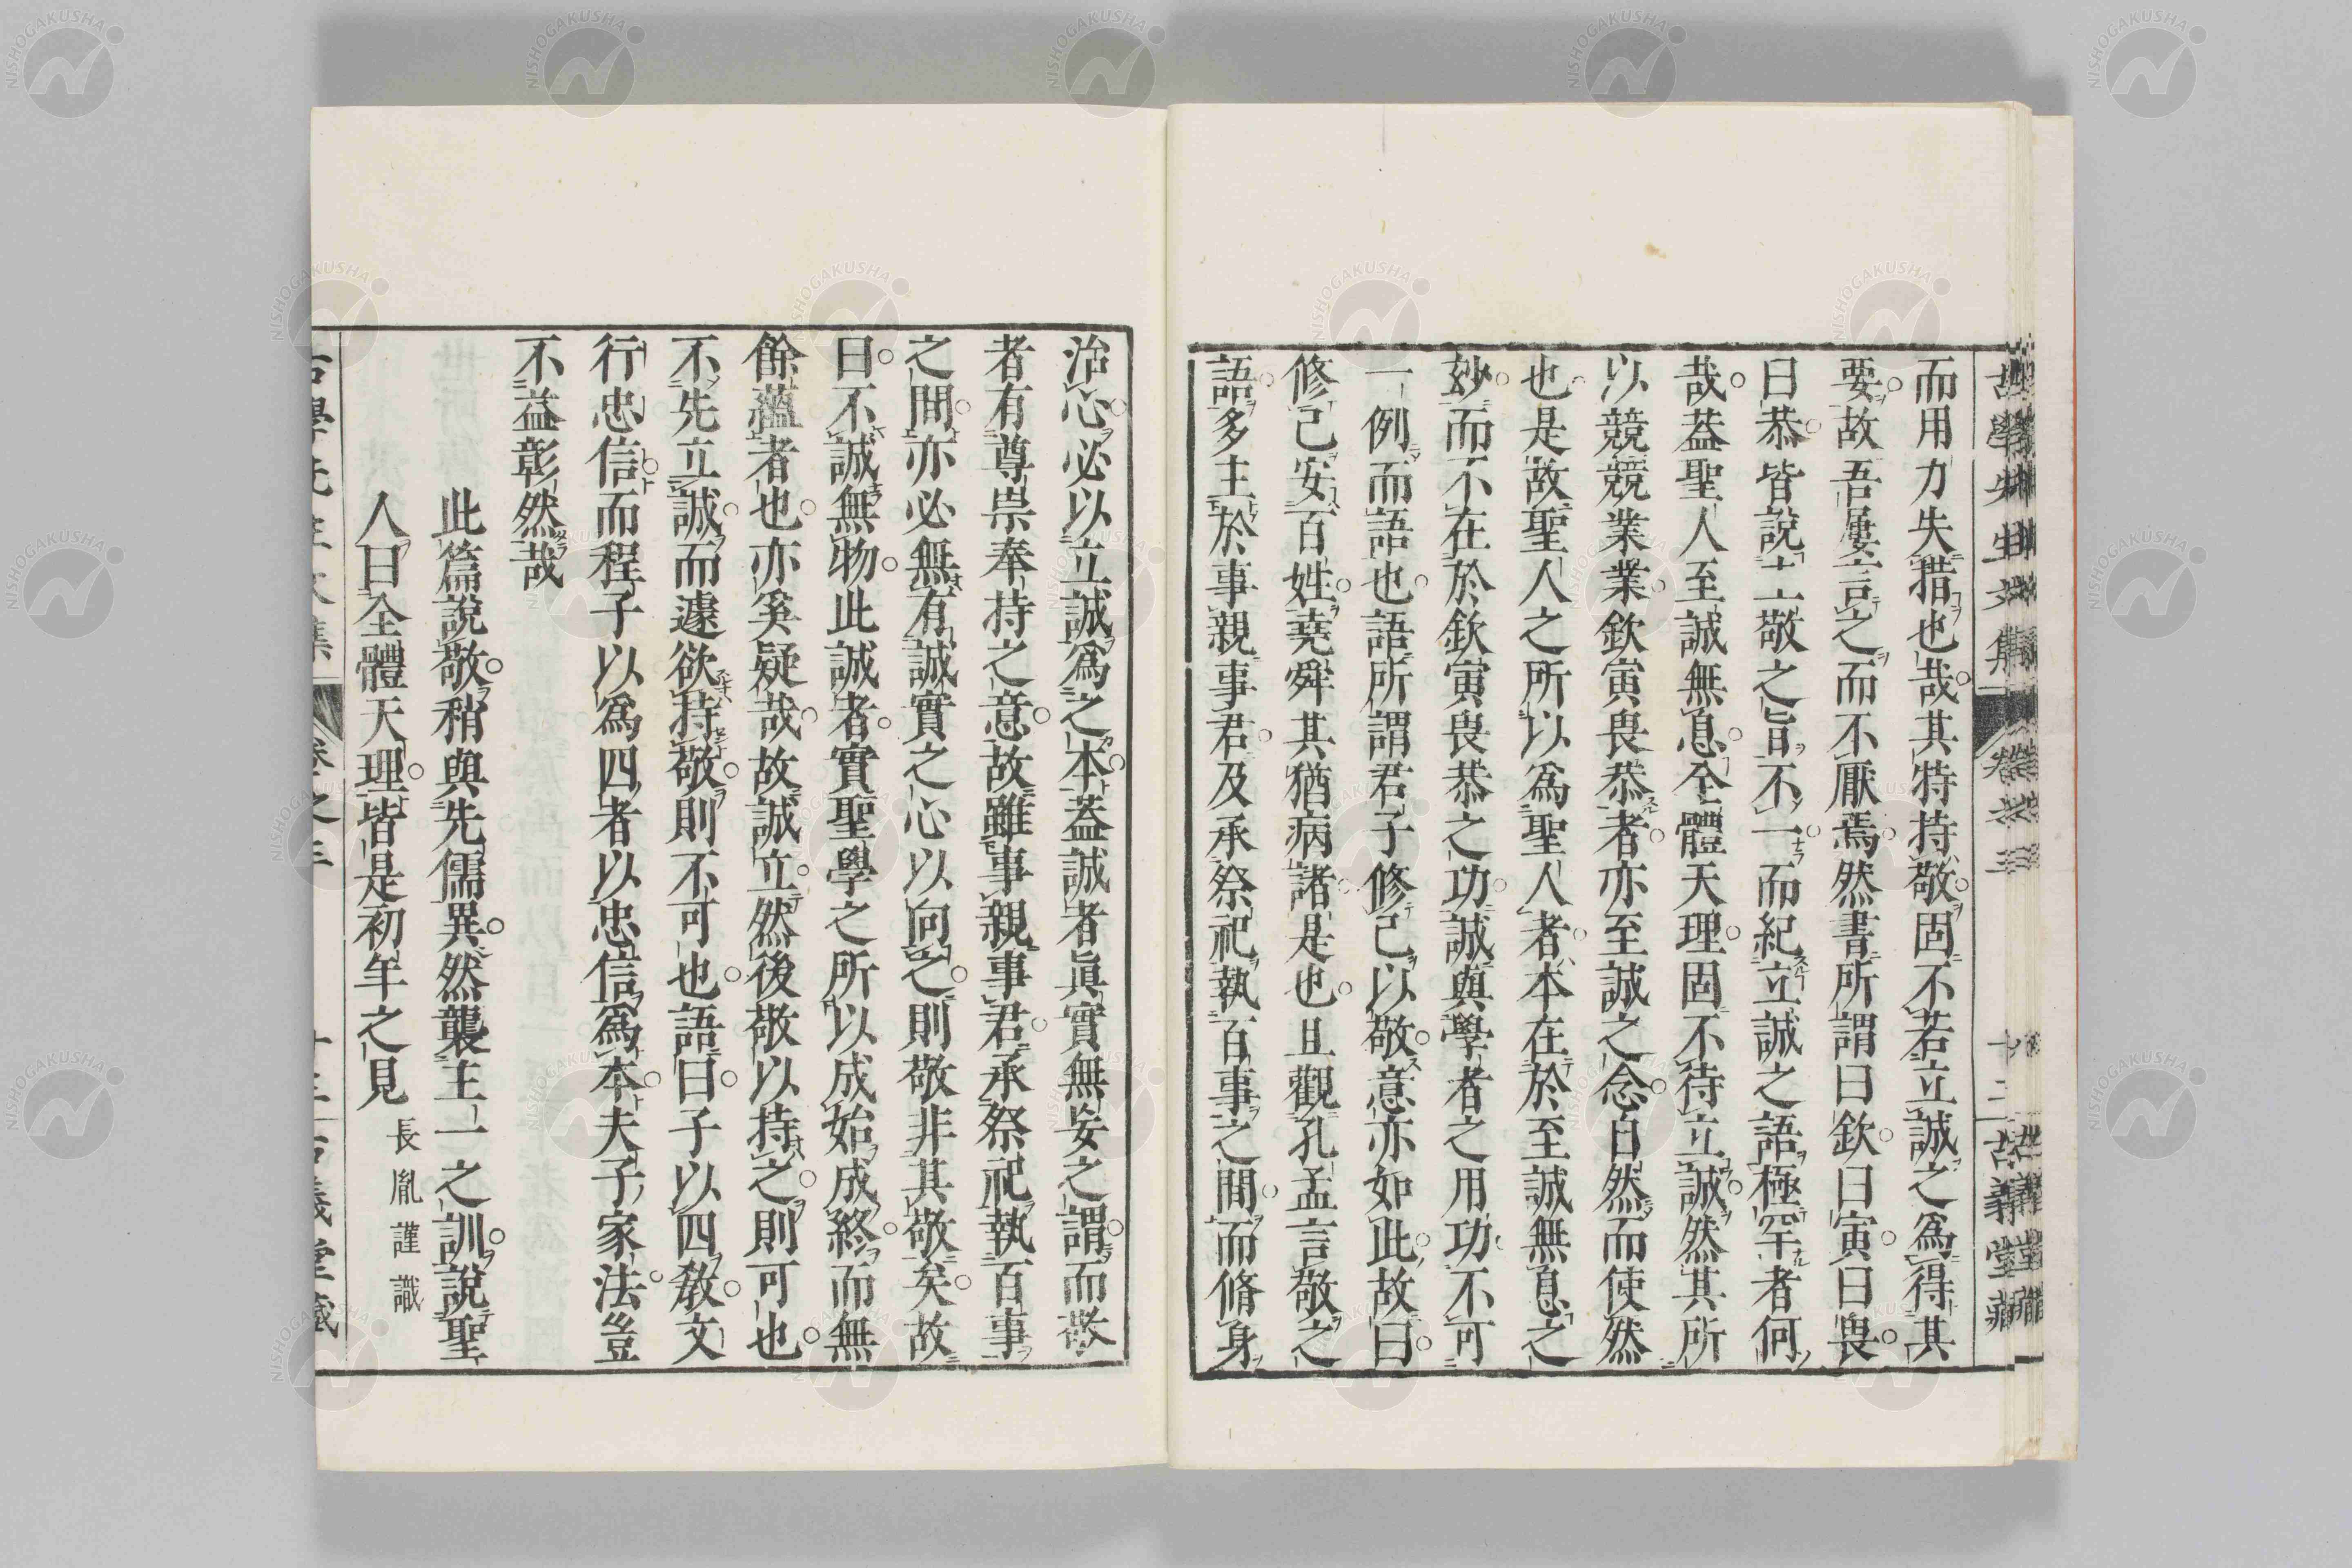 古學先生文集 卷之三 十三 古義堂藏
而用力失措也哉其特持敬固不若立誠之爲得其
要故吾屢言之而不厭焉然書所謂曰欽曰寅曰畏
曰恭皆說主敬之旨不一而紀立誠之語極罕者何
哉蓋聖人至誠無息全體天理固不待立誠然其所
以競競業業欽寅畏恭者亦至誠之念自然而使然
也是故聖人之所以爲聖人者本在於至誠無息之
妙而不在於欽寅畏恭之功誠與學者之用功不可
一例而語也語所謂君子修己以敬意亦如此故曰
修己安百姓堯舜其猶病諸是也且觀孔孟言敬之
語多主於事親事君及承祭祀執百事之間而脩身
治心必以立誠爲之本蓋誠者眞實無妄之謂而敬
者有尊崇奉持之意故雖事親事君承祭祀執百事
之間亦必無有誠實之心以向之則敬非其敬矣故
曰不誠無物此誠者實聖學之所以成始成終而無
餘蘊者也亦奚疑哉故誠立然後敬以持之則可也
不先立誠而遽欲持敬則不可也語曰子以四敎文
行忠信而程子以爲四者以忠信爲本夫子家法豈
不益彰然哉
此篇說敬稍與先儒異然襲主一之訓說聖
人曰全體天理皆是初年之見 長胤謹識